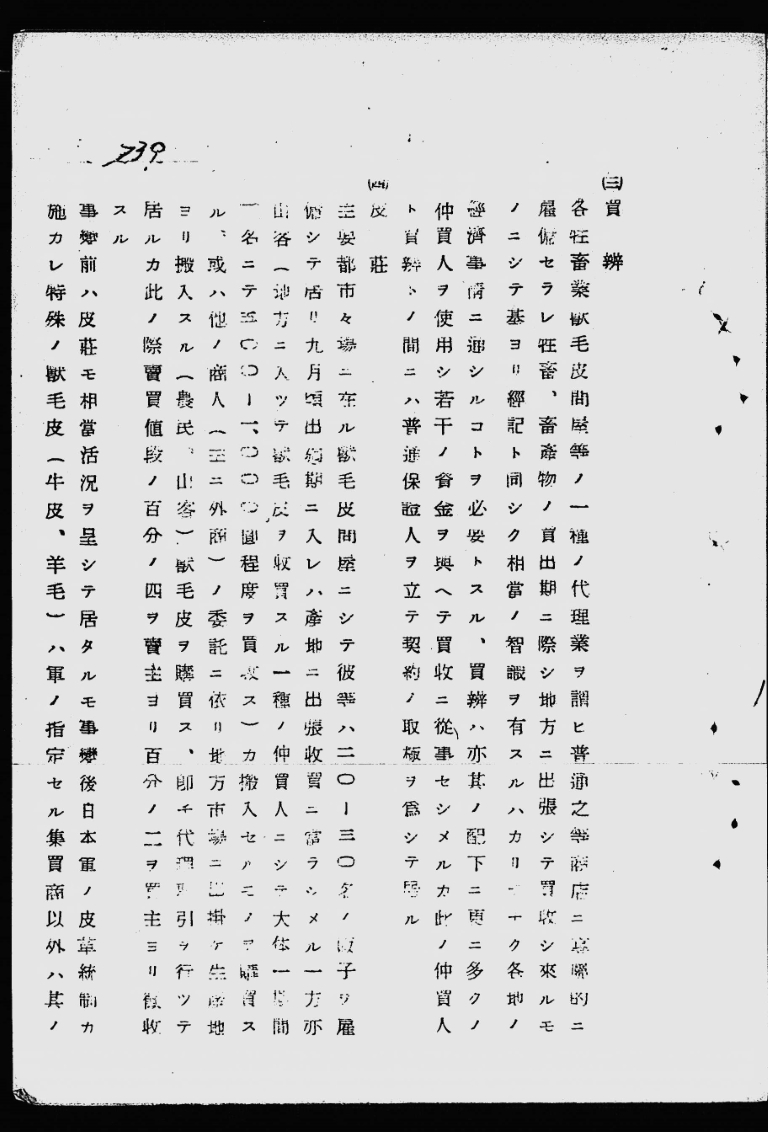 739
㈢買辨
各牲畜業獣毛皮問屋等ノ一種ノ代理業ヲ謂ヒ普通之等商店ニ専 的ニ
雇傭セラレ牲畜、畜産物ノ買出期ニ際シ地方ニ出張シテ買收シ來ルモ
ノニシテ基ヨリ經記ト同シク相當ノ智識ヲ有スルハカリテナク各地ノ
經濟事情ニ通シルコトヲ必要トスル、買辨ハ亦其ノ配下ニ更ニ多クノ
仲買人ヲ使用シ若干ノ資金ヲ與ヘテ買收ニ從事セシメルカ此ノ仲買人
ト買辨トノ間ニハ普通保證人ヲ立テ契約ノ取極ヲ爲シテ居ル
㈣皮莊
主要都市々場ニ在ル獣毛皮問屋ニシテ彼等ハ二〇ー三〇名ノ販子ヲ雇
傭シテ居リ九月頃出 期ニ入レハ產地ニ出張收買ニ當ラシメル一方亦
山客(地方ニ入ツテ獣毛皮ヲ收買スル一種ノ仲買人ニシテ大体一 間
一名ニテ五〇〇ー一、〇〇〇圓程度ヲ買收ス)カ搬入セルモノヲ購買ス
ル、或ハ他ノ商人(主ニ外商)ノ委託ニ依リ地方市場ニ出掛ケ生產地
ヨリ搬入スル(農民、山客)獣毛皮ヲ購買ス、卽チ代理取引ヲ行ツテ
居ルカ此ノ際賣買値段ノ百分ノ四ヲ賣主ヨリ百分ノ二ヲ買主ヨリ徵收
スル
事變前ハ皮莊モ相當活況ヲ呈シテ居タルモ事變後日本軍ノ皮革統制カ
施カレ特殊ノ獣毛皮(牛皮、羊毛)ハ軍ノ指定セル集買商以外ハ其ノ